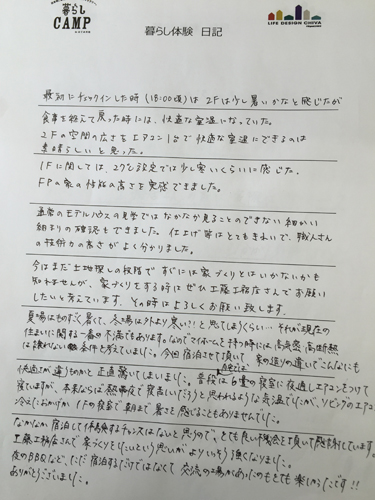 暮らし
CAMP
LIFE DESIGN CHIVA
暮らし体験 日記
最初にチェックインした時(18:00頃)は 2Fは少し暑いかなと感じたが
食事を終えて戻った時には、快適な室温になっていた。
2Fの空間の広さをエアコン1台で快適な室温にできるのは
素晴らしいと思った。
1Fに関しては、27℃設定では少し寒いくらいに感じた。
FPの家の性能の高さを実感できました。
通常のモデルハウスの見学ではなかなか見ることのできない細かい
細まりの確認もできました。仕上げ等はとてもきれいで、職人さん
の技術力の高さがよく分かりました。
今はまだ土地探しの段階で すぐには家づくりとはいかないかも
知れませんが、家づくりをする時にはぜひ工藤工務店さんでお願い
したいと考えています。その時はよろしくお願い致します。
夏場はものすごく暑くて、冬場は外より寒い!!と思ってしまうくらい… それが現在の
住まいに関する一番の不満でもあります。なのでマイホームを持つ時には高気密高断熱
は譲れない条件と考えていました。今回宿泊させて頂いて 家の造りの違いでこんなにも
快適さが違うものかと正直驚いてしまいました。普段は6畳の寝室に夜通しエアコンをつけて
寝ていますが、本来ならば熱帯夜で寝苦しいだろうと思われるような気温でしたが、リビングのエアコン
冷えたおかげか 1Fの寝室で朝まで暑さと感じることもありませんでした。
なかなか宿泊して体験するチャンスはないと思うので、とても良い機会を頂いて感謝しています。
工藤工務店さんで家づくりをしたいという思いがよりいっそう強くなりました。
夜のBBQなど、ただ宿泊するだけではなくて 交流の場があったのもとても楽しかったです!!
ありがとうございました。